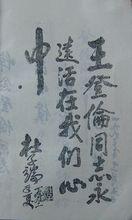 王登倫同志永
遠活在我们心
中
杜子端